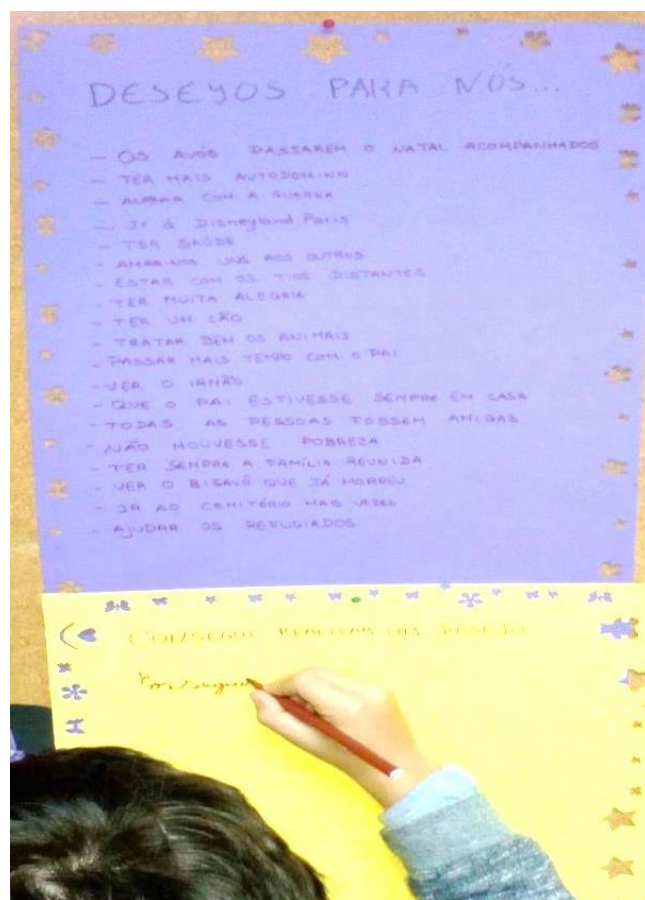 DESEJOS PARA NÓS...
- OS AVÓS PASSAREM O NATAL ACOMPANHADOS
- TER MAIS AUTODOMINIO
- ACABAR COM A GUERRA
- Ir à Disneyland Paris
- TER SAÚDE
- AMAR-NOS UNS AOS OUTROS
- ESTAR COM OS TIOS DISTANTES
- TER MUITA ALEGRIA
- TER UM CÃO
- TRATAR BEM OS ANIMAIS
- PASSAR MAIS TEMPO COM O PAI
- VER O IRMÃO
- QUE O PAI ESTIVESSE SEMPRE EM CASA
- TODAS AS PESSOAS FOSSEM AMIGAS
- NÃO HOUVESSE POBREZA
- TER SEMPRE A FAMÍLIA REUNIDA
- VER O BISAVÔ QUE JÁ MORREU
- IR AO CEMITÉRIO MAIS VEZES
- AJUDAR OS REFUGIADOS
CONSEGUI REALIZAR UM DESEJO
Consegui